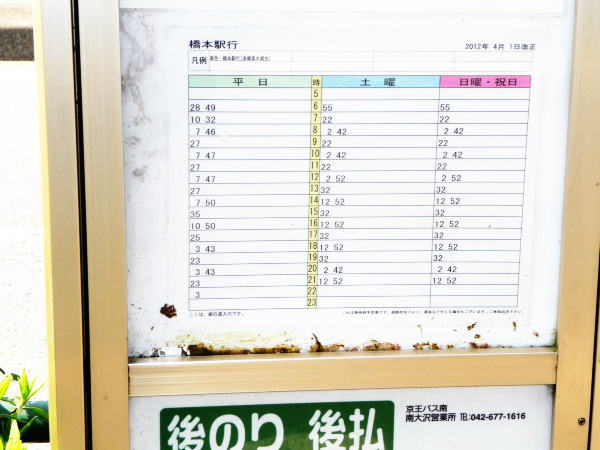 橋本駅行
2012年 4月 1日改正
凡例
平 日 時 土 曜 日曜・祝日
5
28 49 6 55 55
10 32 7 22 22
7 46 8 2 42 2 42
27 9 22 22
7 47 10 2 42 2 42
27 11 22 22
7 47 12 2 52 2 52
27 13 32 32
7 50 14 12 52 12 52
35 15 32 32
10 50 16 12 52 12 52
25 17 32 32
3 43 18 12 52 12 52
23 19 32 32
3 43 20 2 42 2 42
23 21 12 52 12 52
3 22
23
後のり 後払
京王バス南
南大沢営業所 TEL:042-677-1616